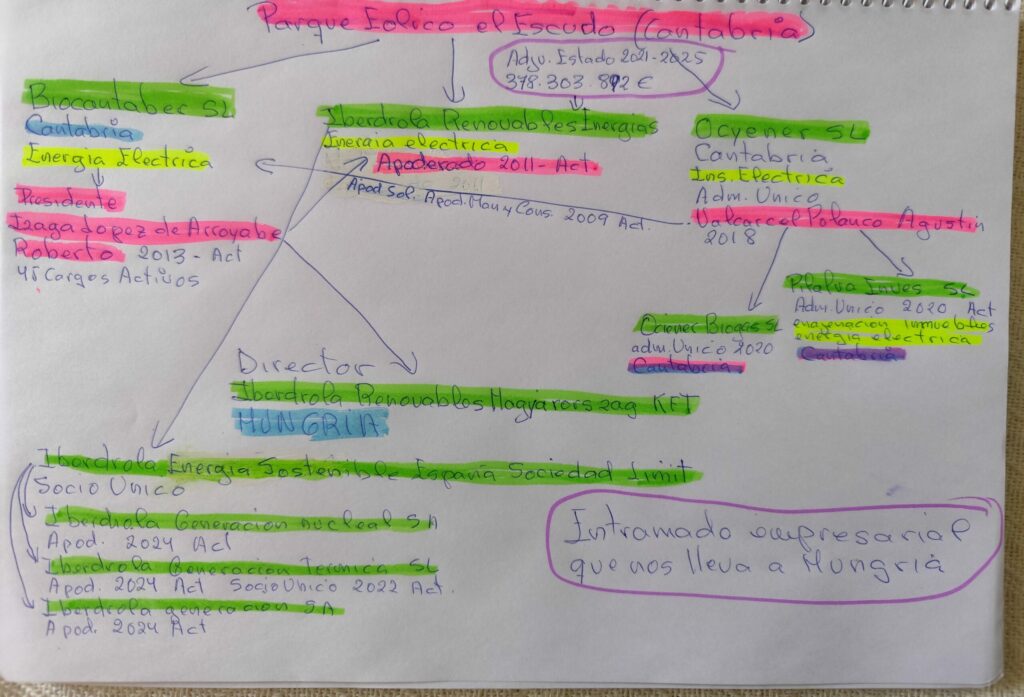 Parque Eolico el Escudo (Cantabria)
Adju. Estado 2021-2025
378.303.892 €
Biocantaber SL
Cantabria
Energia Electrica
Presidente
Isaga Lopez de Arroyabe
Roberto 2013 - Act
45 Cargos Activos
Iberdrola Renovables Energias
Energia electrica
Apoderado 2011 - Act.
2011
Apod Sol. Apod. Man y Cons. 2009 Act.
Ocyener SL
Cantabria
Ins. Electrica
Adm. Unico
Valcarcel Polanco Agustin
2018
Ociener Biogas SL
adm. Unico 2020
Cantabria
Inves SL
Adm. Unico 2020 Act
enagenacion inmuebles
energia electrica
Cantabria
Director
Iberdrola Renovables Magyarorszag KFT
HUNGRIA
Iberdrola Energia Sostenible España Sociedad Limit
Socio Unico
Iberdrola Generacion nuclear SA
Apod. 2024 Act
Iberdrola Generacion Termica SL
Apod. 2024 Act Socio Unico 2022 Act.
Iberdrola generacion SA
Apod. 2024 Act
Intramado empresarial
que nos lleva a Hungria